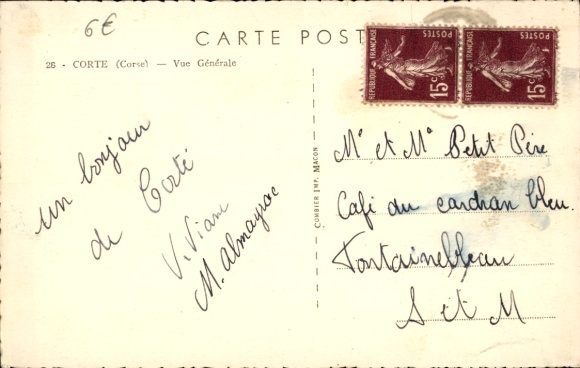 6€
CARTE POST
26 - CORTE (Corse) — Vue Générale
un bonjour
de Corté
V. Viani
M. Almayrac
COMBIER IMP. MACON
REPUBLIQUE FRANÇAISE
POSTES
15c
REPUBLIQUE FRANÇAISE
POSTES
15c
Mr et Me Petit Père
Café du cardran bleu.
Fontainebleau
S et M